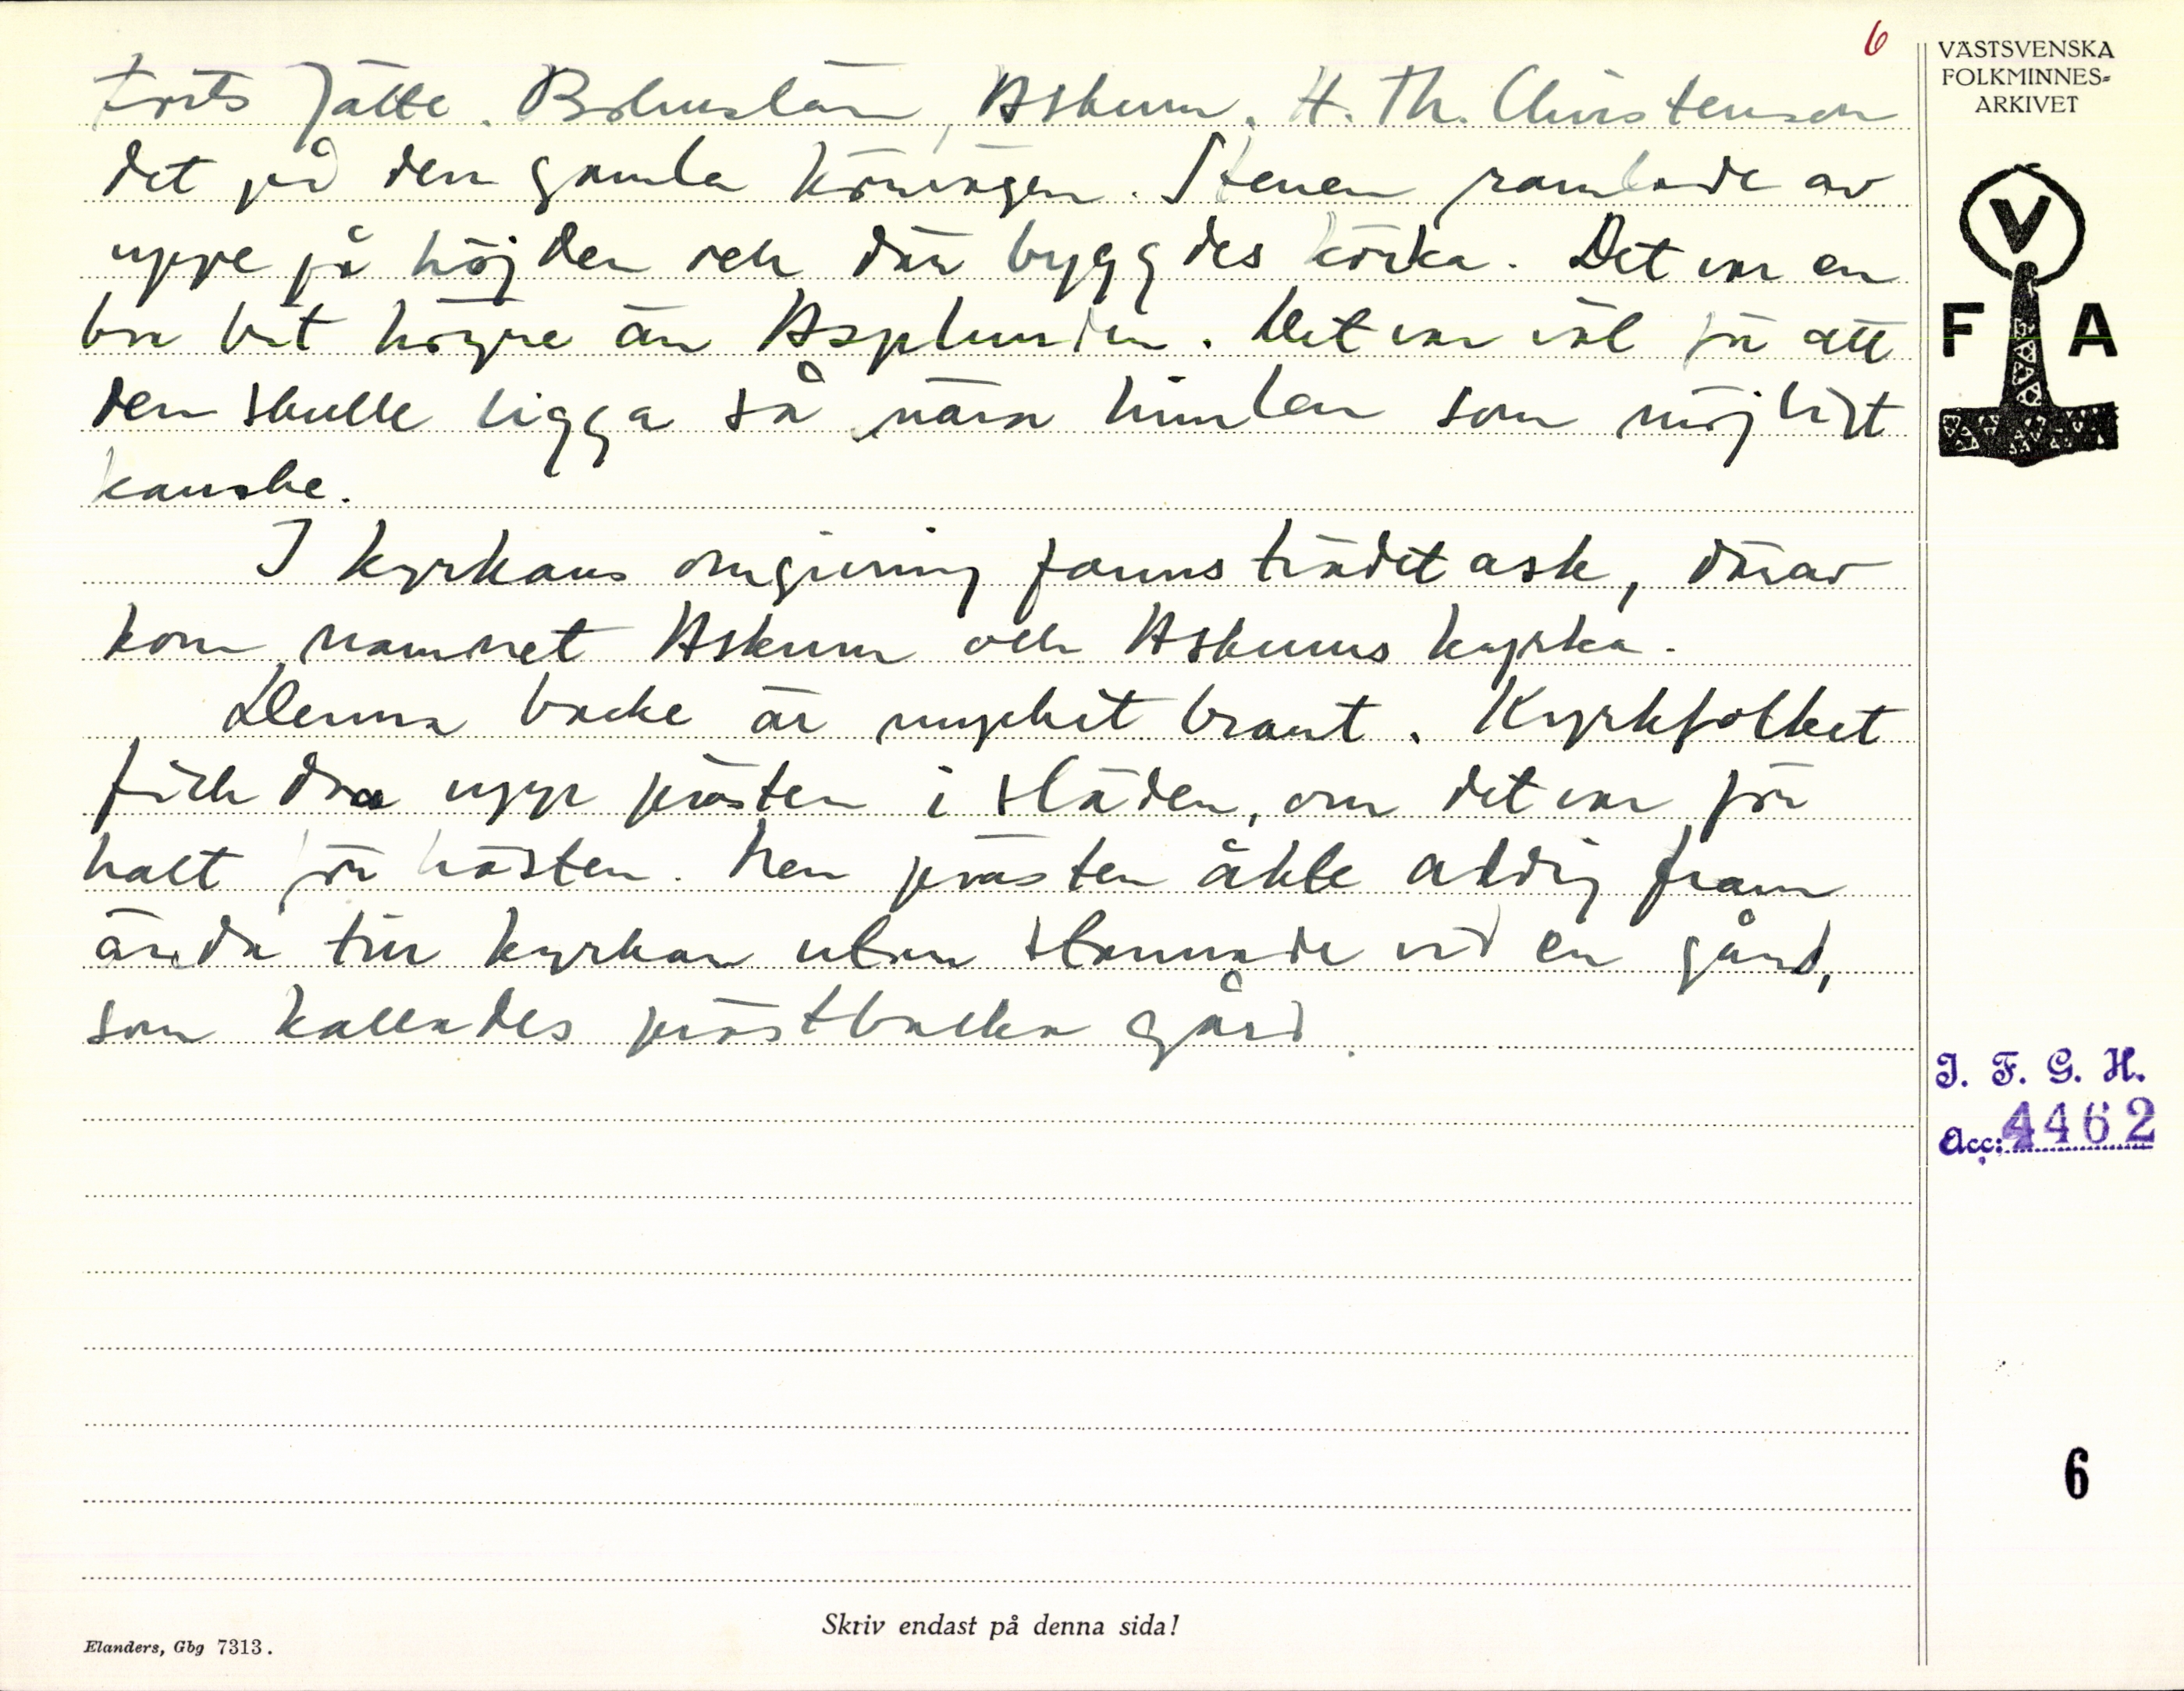 6
forts Jätte. Bohuslän, Askum. H. Th. Christenson
det på den gamla körvägen. Stenen ramlade av
uppe på höjden och där byggdes körka. Det var en
bra bit högre än Asplunden. Det var väl för att
den skulle ligga så nära himlen som möjligt
kanske.
I kyrkans omgivning fanns trädet ask, därav
kom namnet Askum och Askums kyrka.
Denna backe är mycket brant. Kyrkfolket
fick dra upp prästen i släden, om det var för
halt för hästen. Men prästen åkte aldrig fram
ända till kyrkan utan stannade vid en gård,
som kallades prästbacka gård.
VÄSTSVENSKA
FOLKMINNES-
ARKIVET
V
F A
I. F. G. H.
Acc: 4462
6
Skriv endast på denna sida!
Elanders, Gbg 7313.